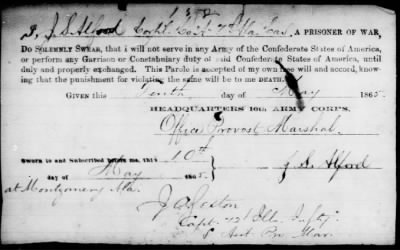 I, J. S. Alford Capt. Co. K 7th Ala. Cav. A PRISONER OF WAR,
DO SOLEMNLY SWEAR, that I will not serve in any Army of the Confederate States of America,
or perform any Garrison or Constabulary duty of said Confederate States of America, until
duly and properly exchanged. This Parole is accepted of my own free will and accord, knowing
that the punishment for violating the same will be to me DEATH.
GIVEN this Tenth day of May 1865.
HEADQUARTERS 16th ARMY CORPS.
Office Provost Marshal.
Sworn to and Subscribed before me, this 10th
day of May 1865. J. S. Alford
at Montgomery Ala.
Capt. 72d Ills. Infty.
& Asst. Pro. Mar.